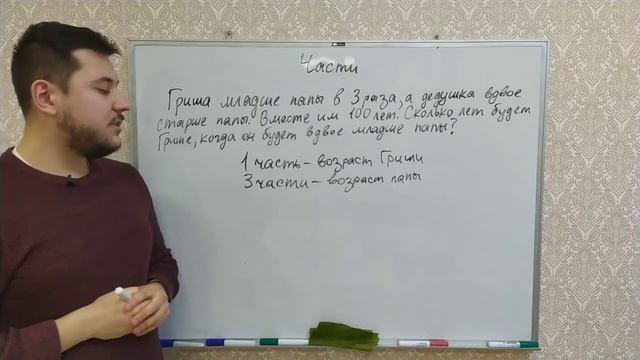 Части
Гриша младше папы в 3 раза, а дедушка вдвое
старше папы. Вместе им 100 лет. Сколько лет будет
Грише, когда он будет вдвое младше папы?
1 часть – возраст Гриши
3 части – возраст папы